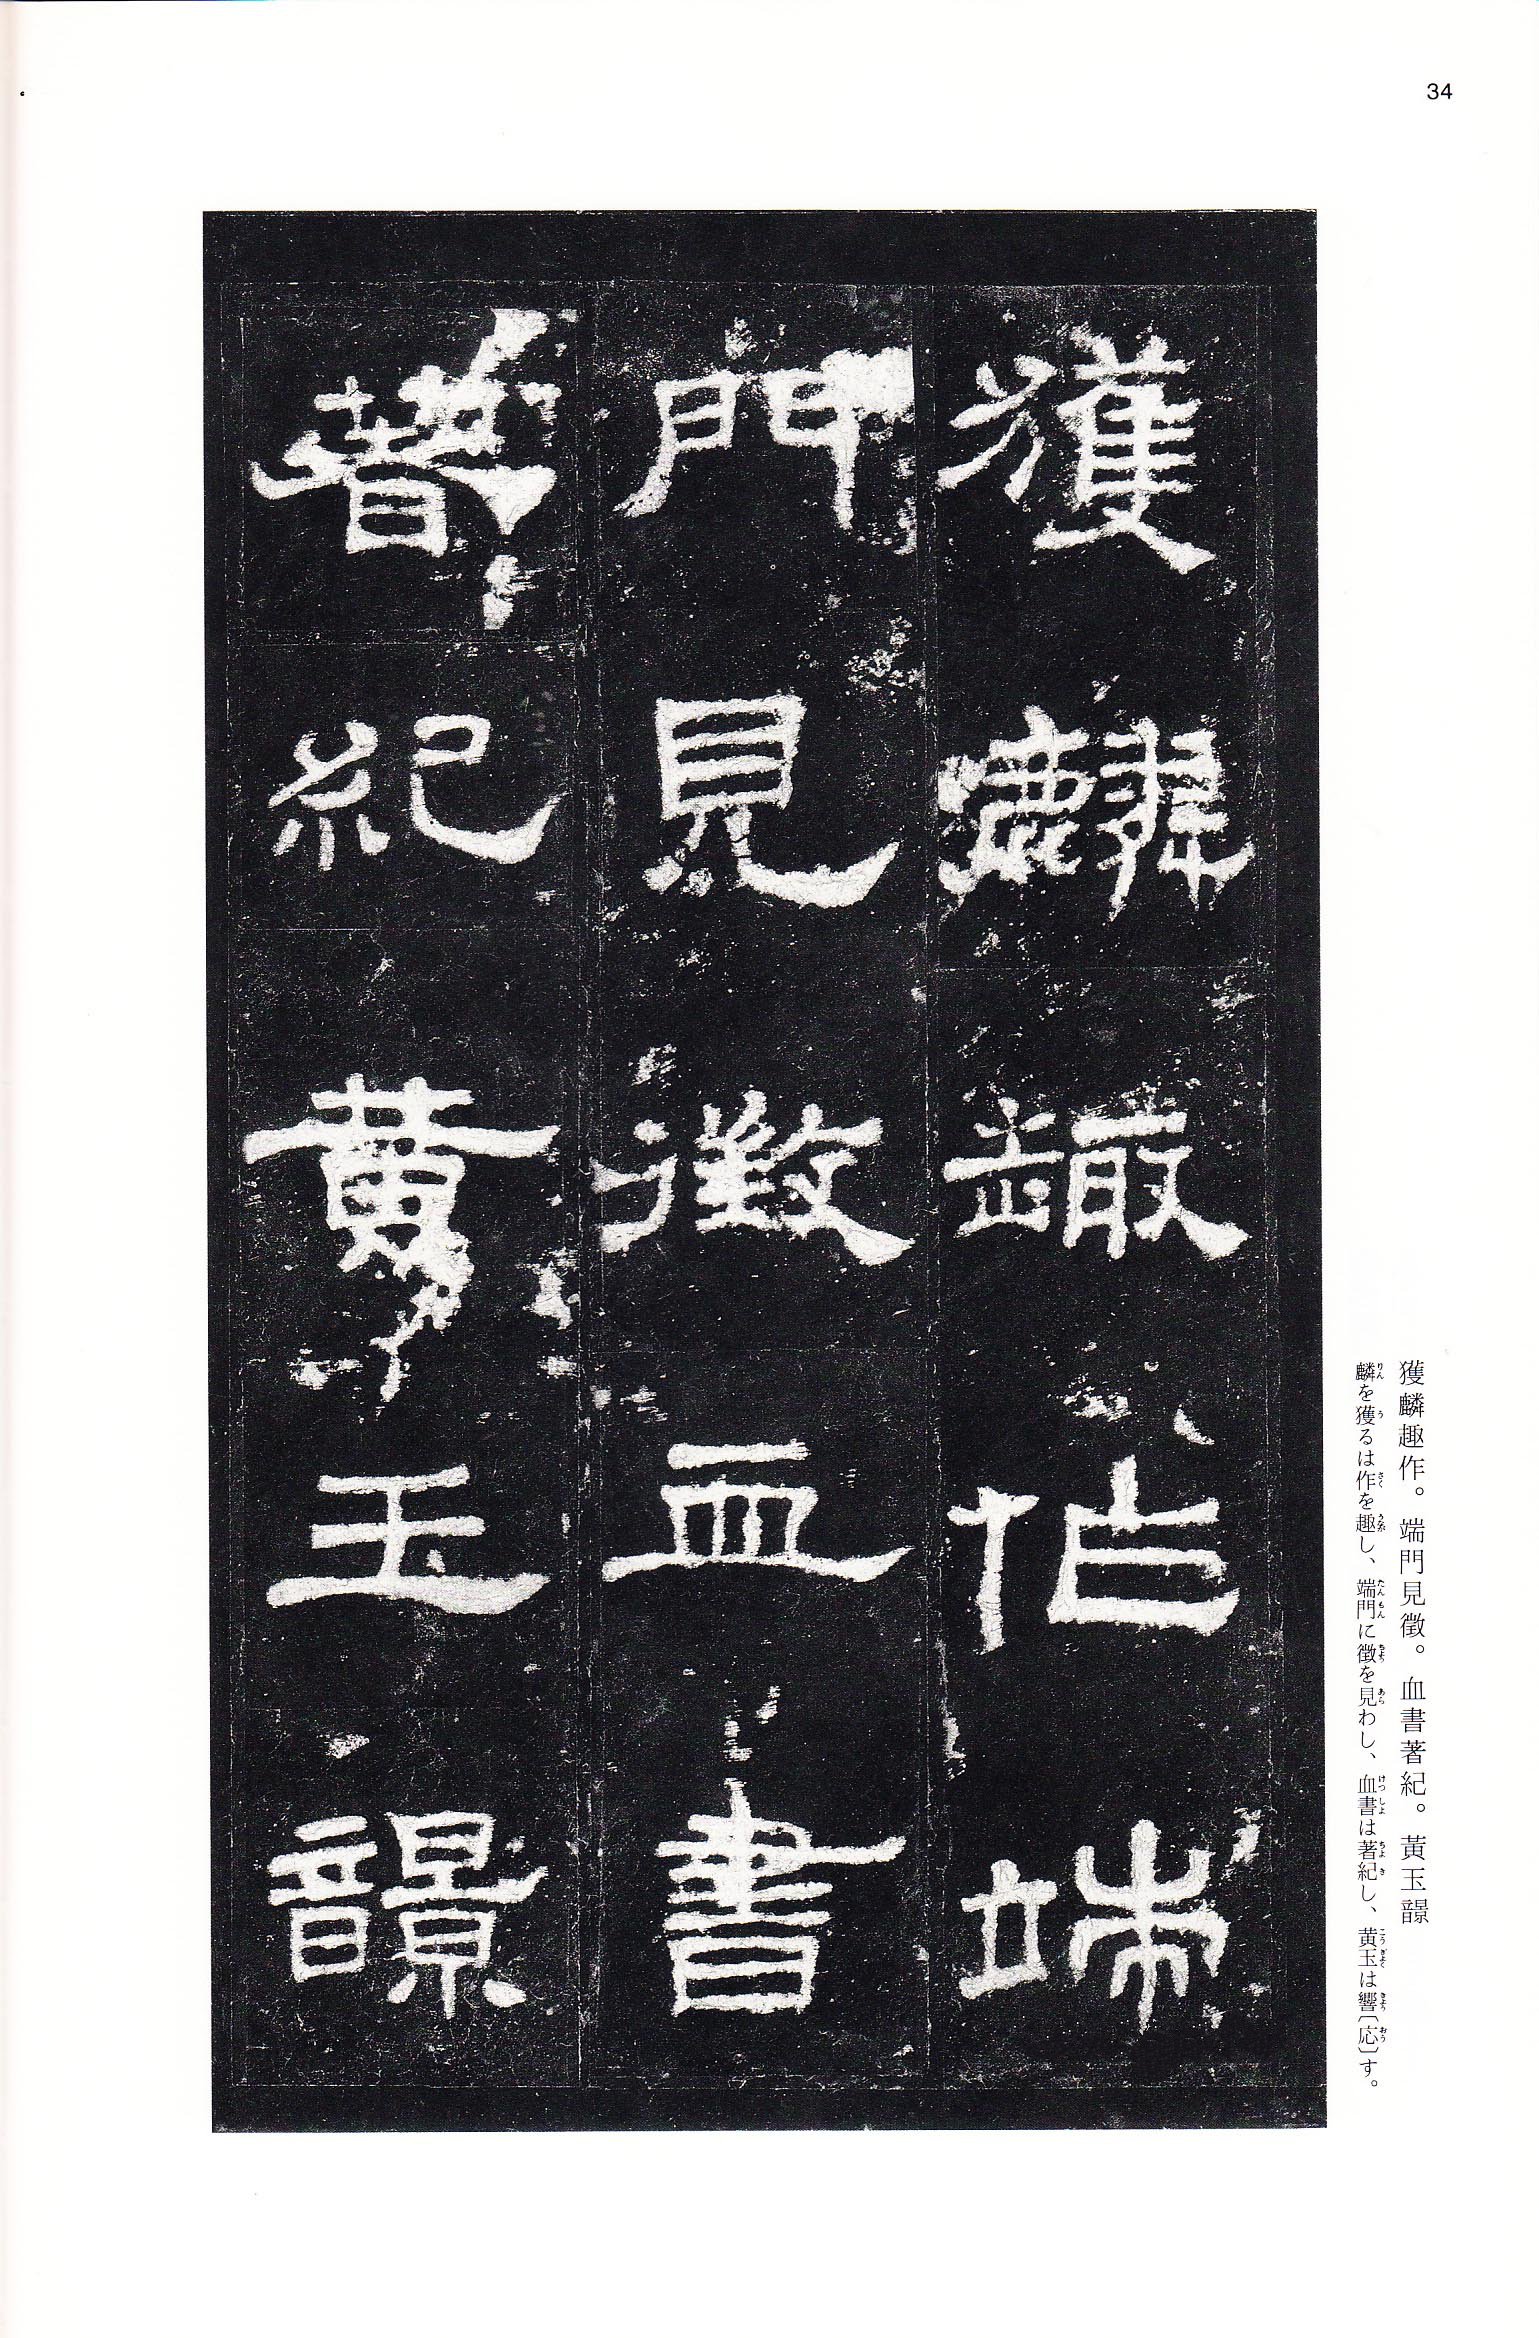 34
獲麟趣作端
門見徵血書
著紀黃玉䪫
獲麟趣作。端門見徵。血書著紀。黃玉䪫
麟を獲るは作を趣し、端門に徵を見わし、血書は著紀し、黃玉は響〔応〕す。